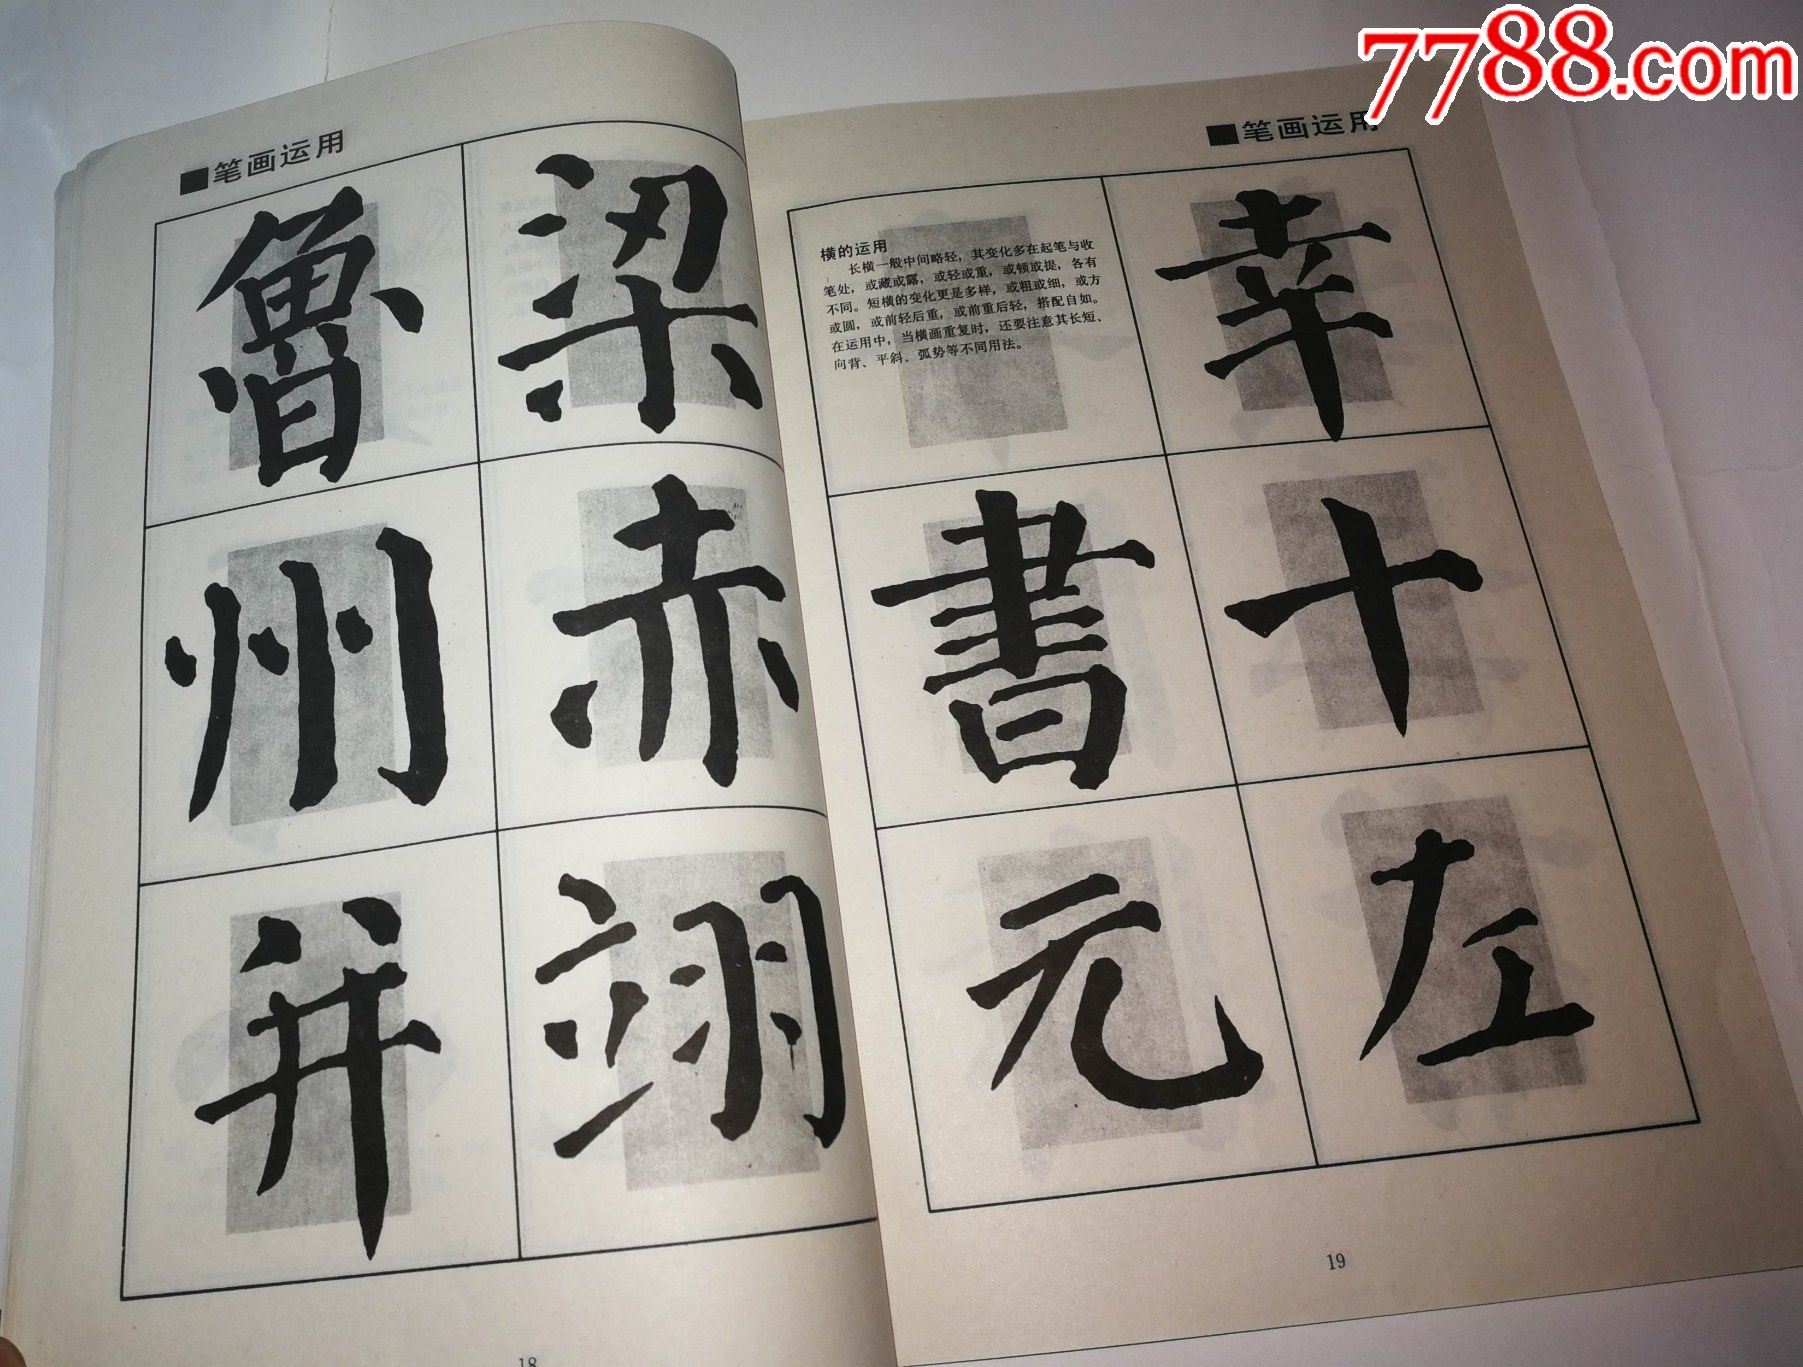 7788.com
■笔画运用
魯 梁
州 赤
并 翊
18
■笔画运用
横的运用
长横一般中间略轻，其变化多在起笔与收
笔处，或藏或露，或轻或重，或顿或提，各有
不同。短横的变化更是多样，或粗或细，或方
或圆，或前轻后重，或前重后轻，搭配自如。
在运用中，当横画重复时，还要注意其长短、
向背、平斜、弧势等不同用法。
幸
書 十
元 左
19